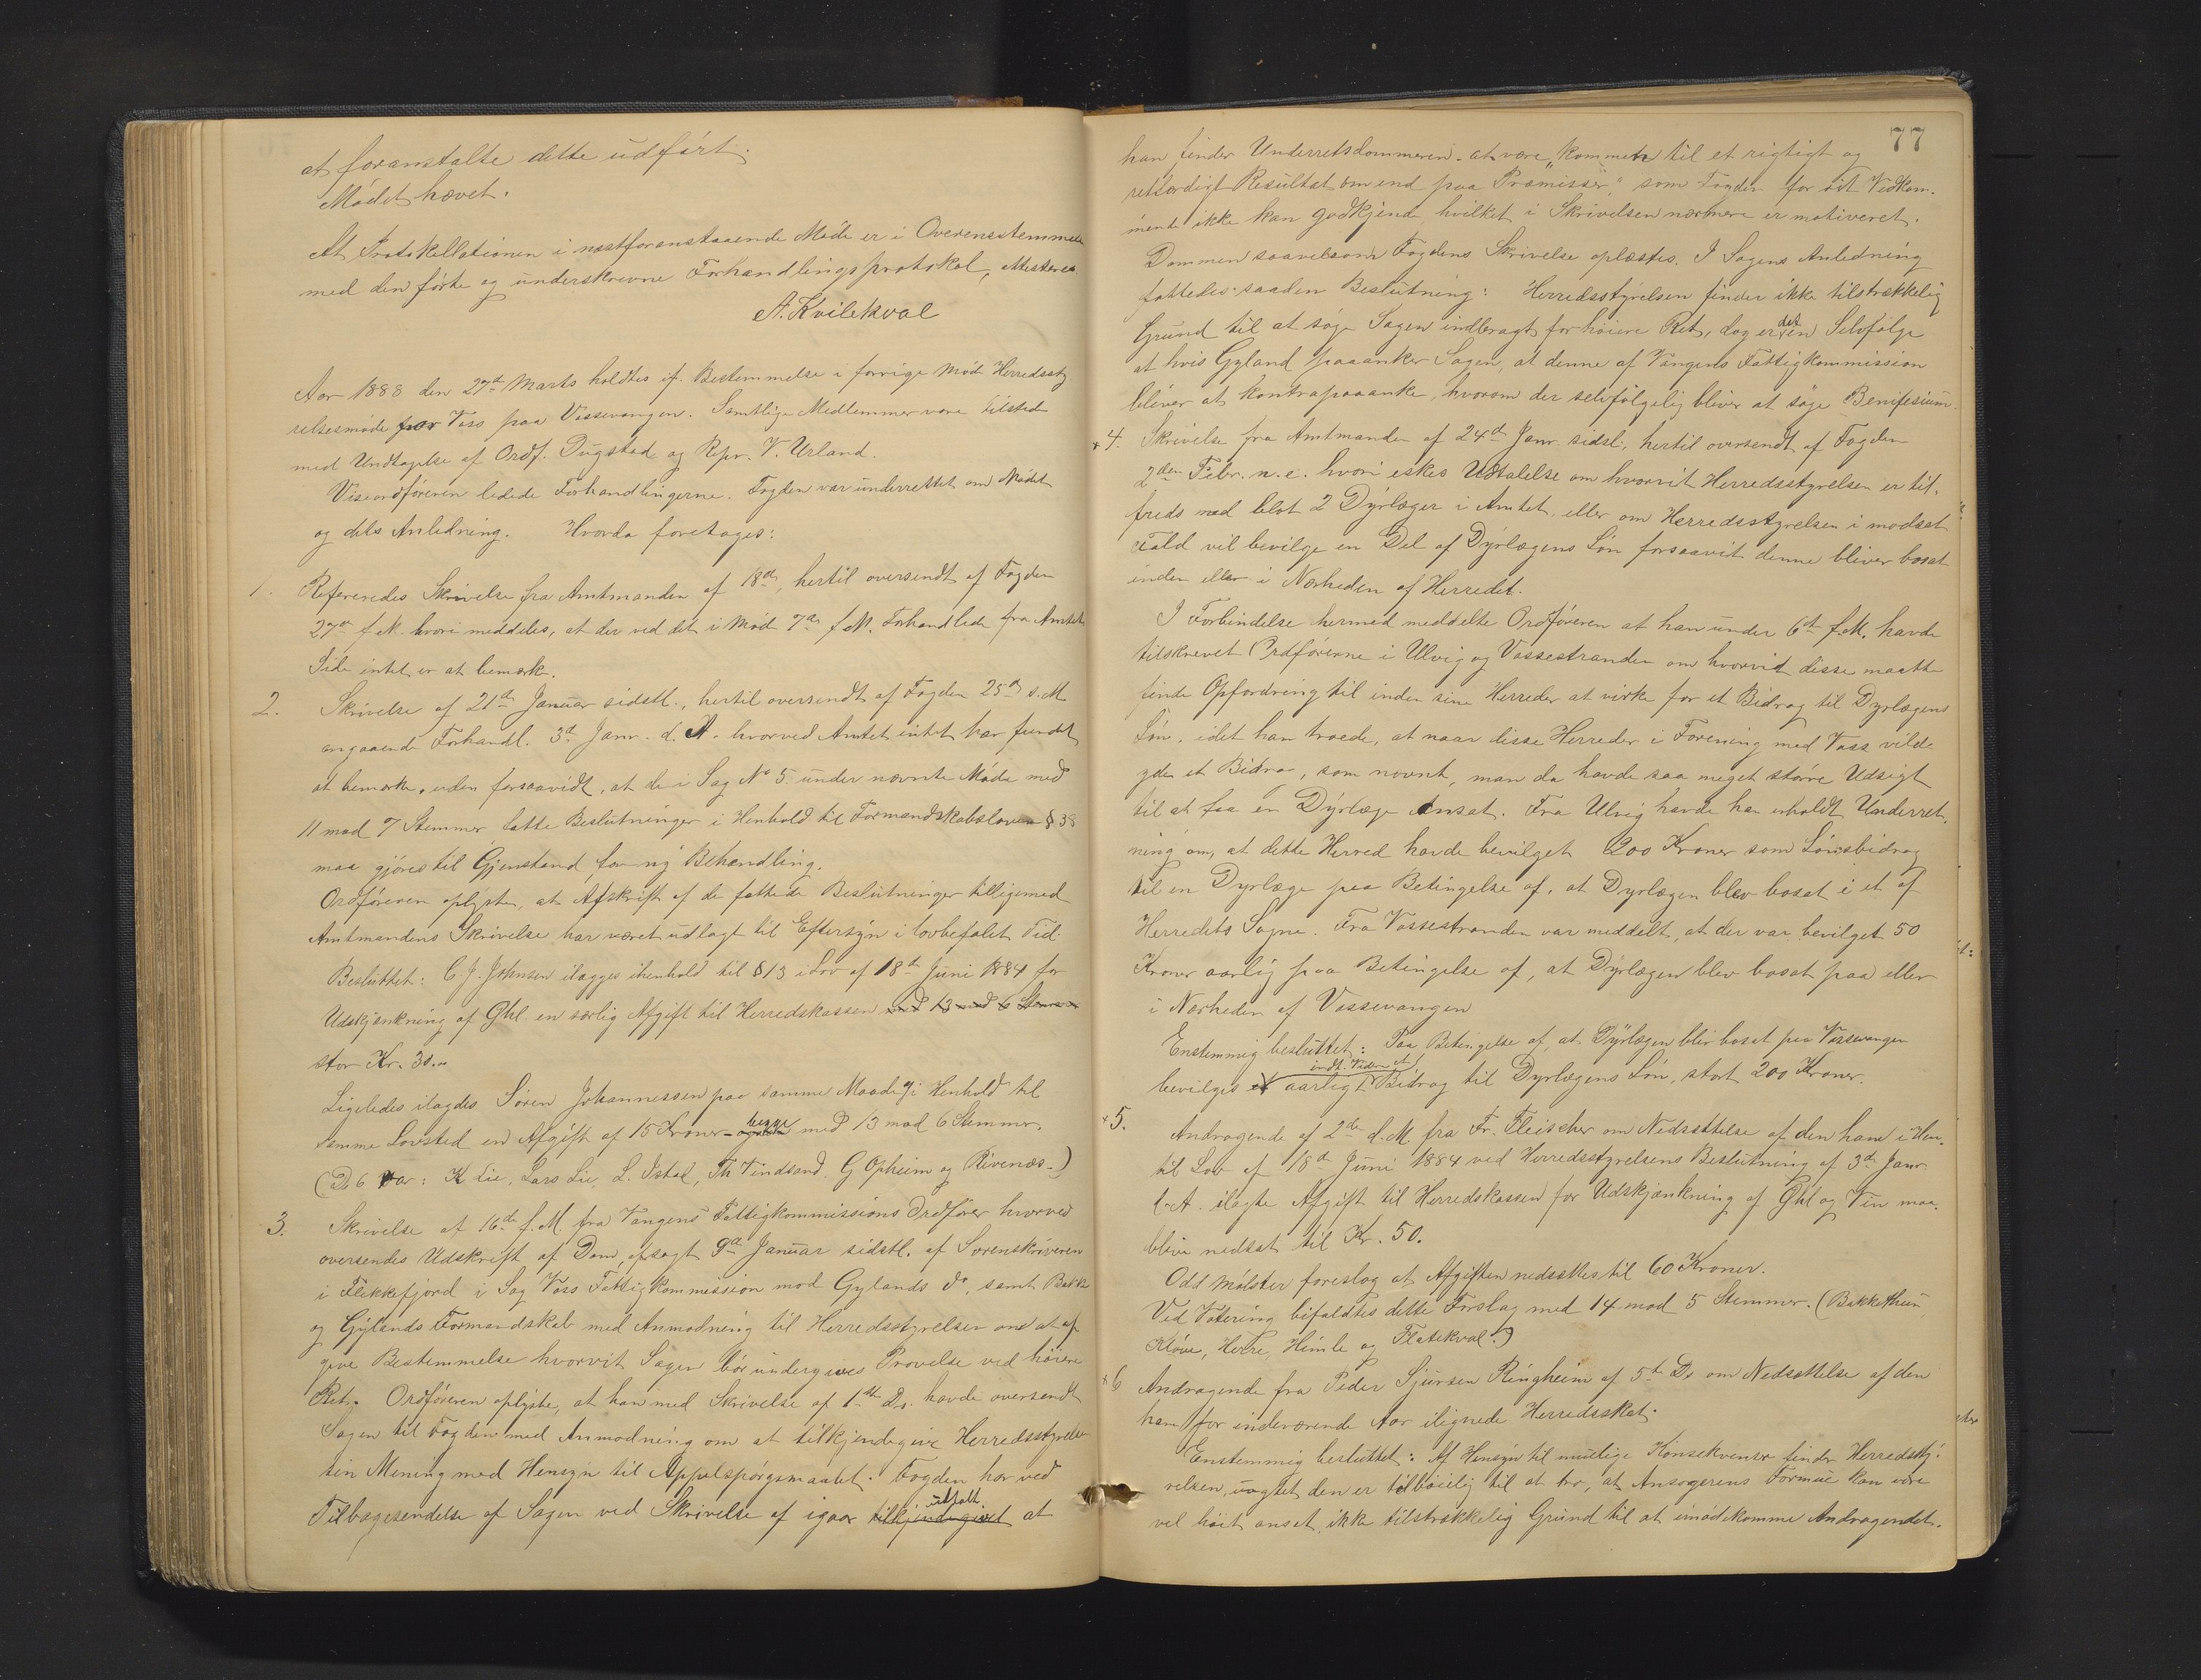 at foranstalte dette udført.
Mødet hævet.
At Protokollationen i næstforanstaaende Møde er i Overensstemmelse
med den førte og underskrevne Forhandlingsprotokol, attesteres
A. Kvilekval
Aar 1888 den 27de Marts holdtes if. Bestemmelse i forrige Møde Herredssty
relsesmøde for Voss paa Vossevangen. Samtlige Medlemmer vare tilstede
med Undtagelse af Ordf. Dugstad og Repr. V. Urland.
Viseordføreren ledede Forhandlingerne. Fogden var underrettet om Mødet
og dets Anledning. Hvorda foretoges:
1. Refereredes Skrivelse fra Amtmanden af 18de, hertil oversendt af Fogden
27de f.M. hvori meddeles, at der ved det i Møde 7de f.M. Forhandlede fra Amtets
Side intet er at bemærke.
2. Skrivelse af 21de Januar sidstl., hertil oversendt af Fogden 25de s.M.
angaaende Forhandl. 3de Janr. d.A. hvorved Amtet intet har fundet
at bemærke, uden forsaavidt, at de i Sag No 5 under nævnte Møde med
11 mod 7 Stemmer fatte Beslutninger i Henhold til Formandskabsloven § 38
maa gjøres til Gjenstand for ny Behandling.
Ordføreren oplyste, at Afskrift af de fattede Beslutninger tilligemed
Amtmandens Skrivelse har været udlagt til Eftersyn i lovbefalet Tid.
Besluttet: C J. Johnsen ilægges ihenhold til § 13 i Lov af 18de Juni 1884 for
Udskjænkning af Øhl en særlig Afgift til Herredskassen med 13 mod 6 Stemmer
stor Kr. 30.00
Ligeledes ilagdes Søren Johannessen paa samme Maade i Henhold til
samme Lovsted en Afgift af 15 Kroner begge med 13 mod 6 Stemmer.
(De 6 var: K Lie, Lars Lie, L. Istad, Th Tindsand G Opheim og Rivenæs.)
3. Skrivelse af 16de f.M. fra Vangens Fattigkommissions Ordfører hvorved
oversendes Udskrift af Dom, afsagt 9de Januar sidstl. af Sorenskriveren
i Flekkefjord i Sag Voss Fattigkommission mod Gylands do, samt Bakke
og Gylands Formandskab med Anmodning til Herredsstyrelsen om at af
give Bestemmelse hvorvit Sagen bør undergives Prøvelse ved høiere
Ret. Ordføreren oplyste, at han med Skrivelse af 1ste Ds. havde oversendt
Sagen til Fogden med Anmodning om at tilkjendegive Herredsstyrelsen
sin Mening med Hensyn til Appelspørgsmaalet. Fogden har ved
Tilbagesendelse af Sagen ved Skrivelse af igaar tilkjendegivet udtalt at
77
han finder Underretsdommeren at være „kommet til et rigtigt og
retfærdigt Resultat om end paa Præmisser," som Fogden for sit Vedkom-
mende ikke kan godkjende hvilket i Skrivelsen nærmere er motiveret.
Dommen saavelsom Fogdens Skrivelse oplæstes. I Sagens Anledning
fattedes saaden Beslutning: Herredsstyrelsen finder ikke tilstrækkelig
Grund til at søge Sagen indbragt for høiere Ret, dog er det en Selvfølge
at hvis Gyland paaanker Sagen, at denne af Vangens Fattigkommission
bliver at kontrapaaanke, hvorom der selvfølgelig bliver at søge Benifesium.
x 4. Skrivelse fra Amtmanden af 24de Janr. sidstl., hertil oversendt af Fogden
2den Febr. n.e. hvori eskes Udtalelse om hvorvit Herredsstyrelsen er til-
freds med blot 2 Dyrlæger i Amtet, eller om Herredsstyrelsen i modsat
Fald vil bevilge en Del af Dyrlægens Løn forsaavit denne bliver bosat
inden eller i Nærheden af Herredet.
I Forbindelse hermed meddelte Ordføreren at han under 6te f.M. havde
tilskrevet Ordførerne i Ulvig og Vossestranden om hvorvid disse maatte
finde Opfordring til inden sine Herreder at virke for et Bidrag til Dyrlægens
Løn, idet han troede, at naar disse Herreder i Forening med Voss vilde
yde et Bidra, som nævnt, man da havde saa meget større Udsigt
til at faa en Dyrlæge Ansat. Fra Ulvig havde han erholdt Underret-
ning om, at dette Herred havde bevilget 200 Kroner som Lønsbidrag
til en Dyrlæge paa Betingelse af, at Dyrlægen blev bosat i et af
Herredets Sogne. Fra Vossestranden var meddelt, at der var bevilget 50
Kroner aarlig paa Betingelse af, at Dyrlægen blev bosat paa eller
i Nærheden af Vossevangen
Enstemmig besluttet: Paa Betingelse af, at Dyrlægen blir bosat paa Vossevangen
bevilges et indt. Videre et aarligt Bidrag til Dyrlægens Løn, stort 200 Kroner.
x 5. Andragende af 2de d.M. fra Fr. Fleischer om Nedsættelse af den ham i Hen.
til Lov af 18de Juni 1884 ved Herredsstyrelsens Beslutning af 3de Janr.
d.A. ilagte Afgift til Herredskassen for Udskjænkning af Øhl og Vin maa
blive nedsat til Kr. 50.
Odd Mølster foreslog at Afgiften nedsættes til 60 Kroner.
Ved Votering bifaldtes dette Forslag med 14 mod 5 Stemmer. (Bakkethun
Kløve, Herre, Himle og Flatekval.)
x 6 Andragende fra Peder Sjursen Ringheim af 5te Ds om Nedsættelse af den
ham for indeværende Aar ilignede Herredsskat.
Enstemmig besluttet: Af Hensyn til mulige Konsekvenser finder Herredssty-
relsen, uagtet den er tilbøielig til at tro, at Ansøgerens Formue kan være
vel høit anset, ikke tilstrækkelig Grund til at imødekomme Andragendet.